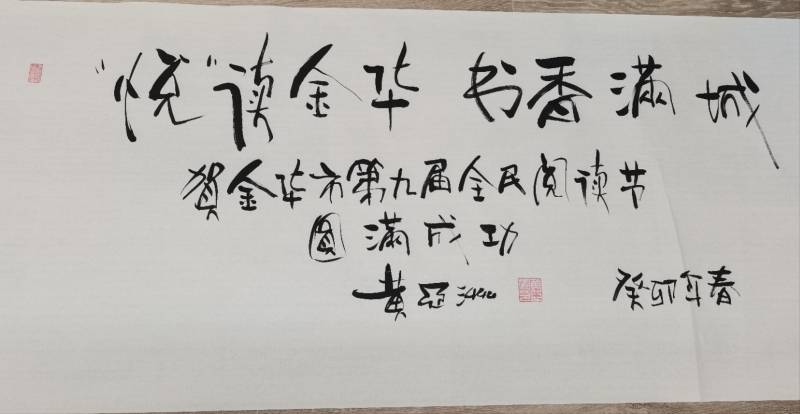 “悦”读金华 书香满城
贺金华市第九届全民阅读节
圆满成功
黄亚洲 癸卯年春